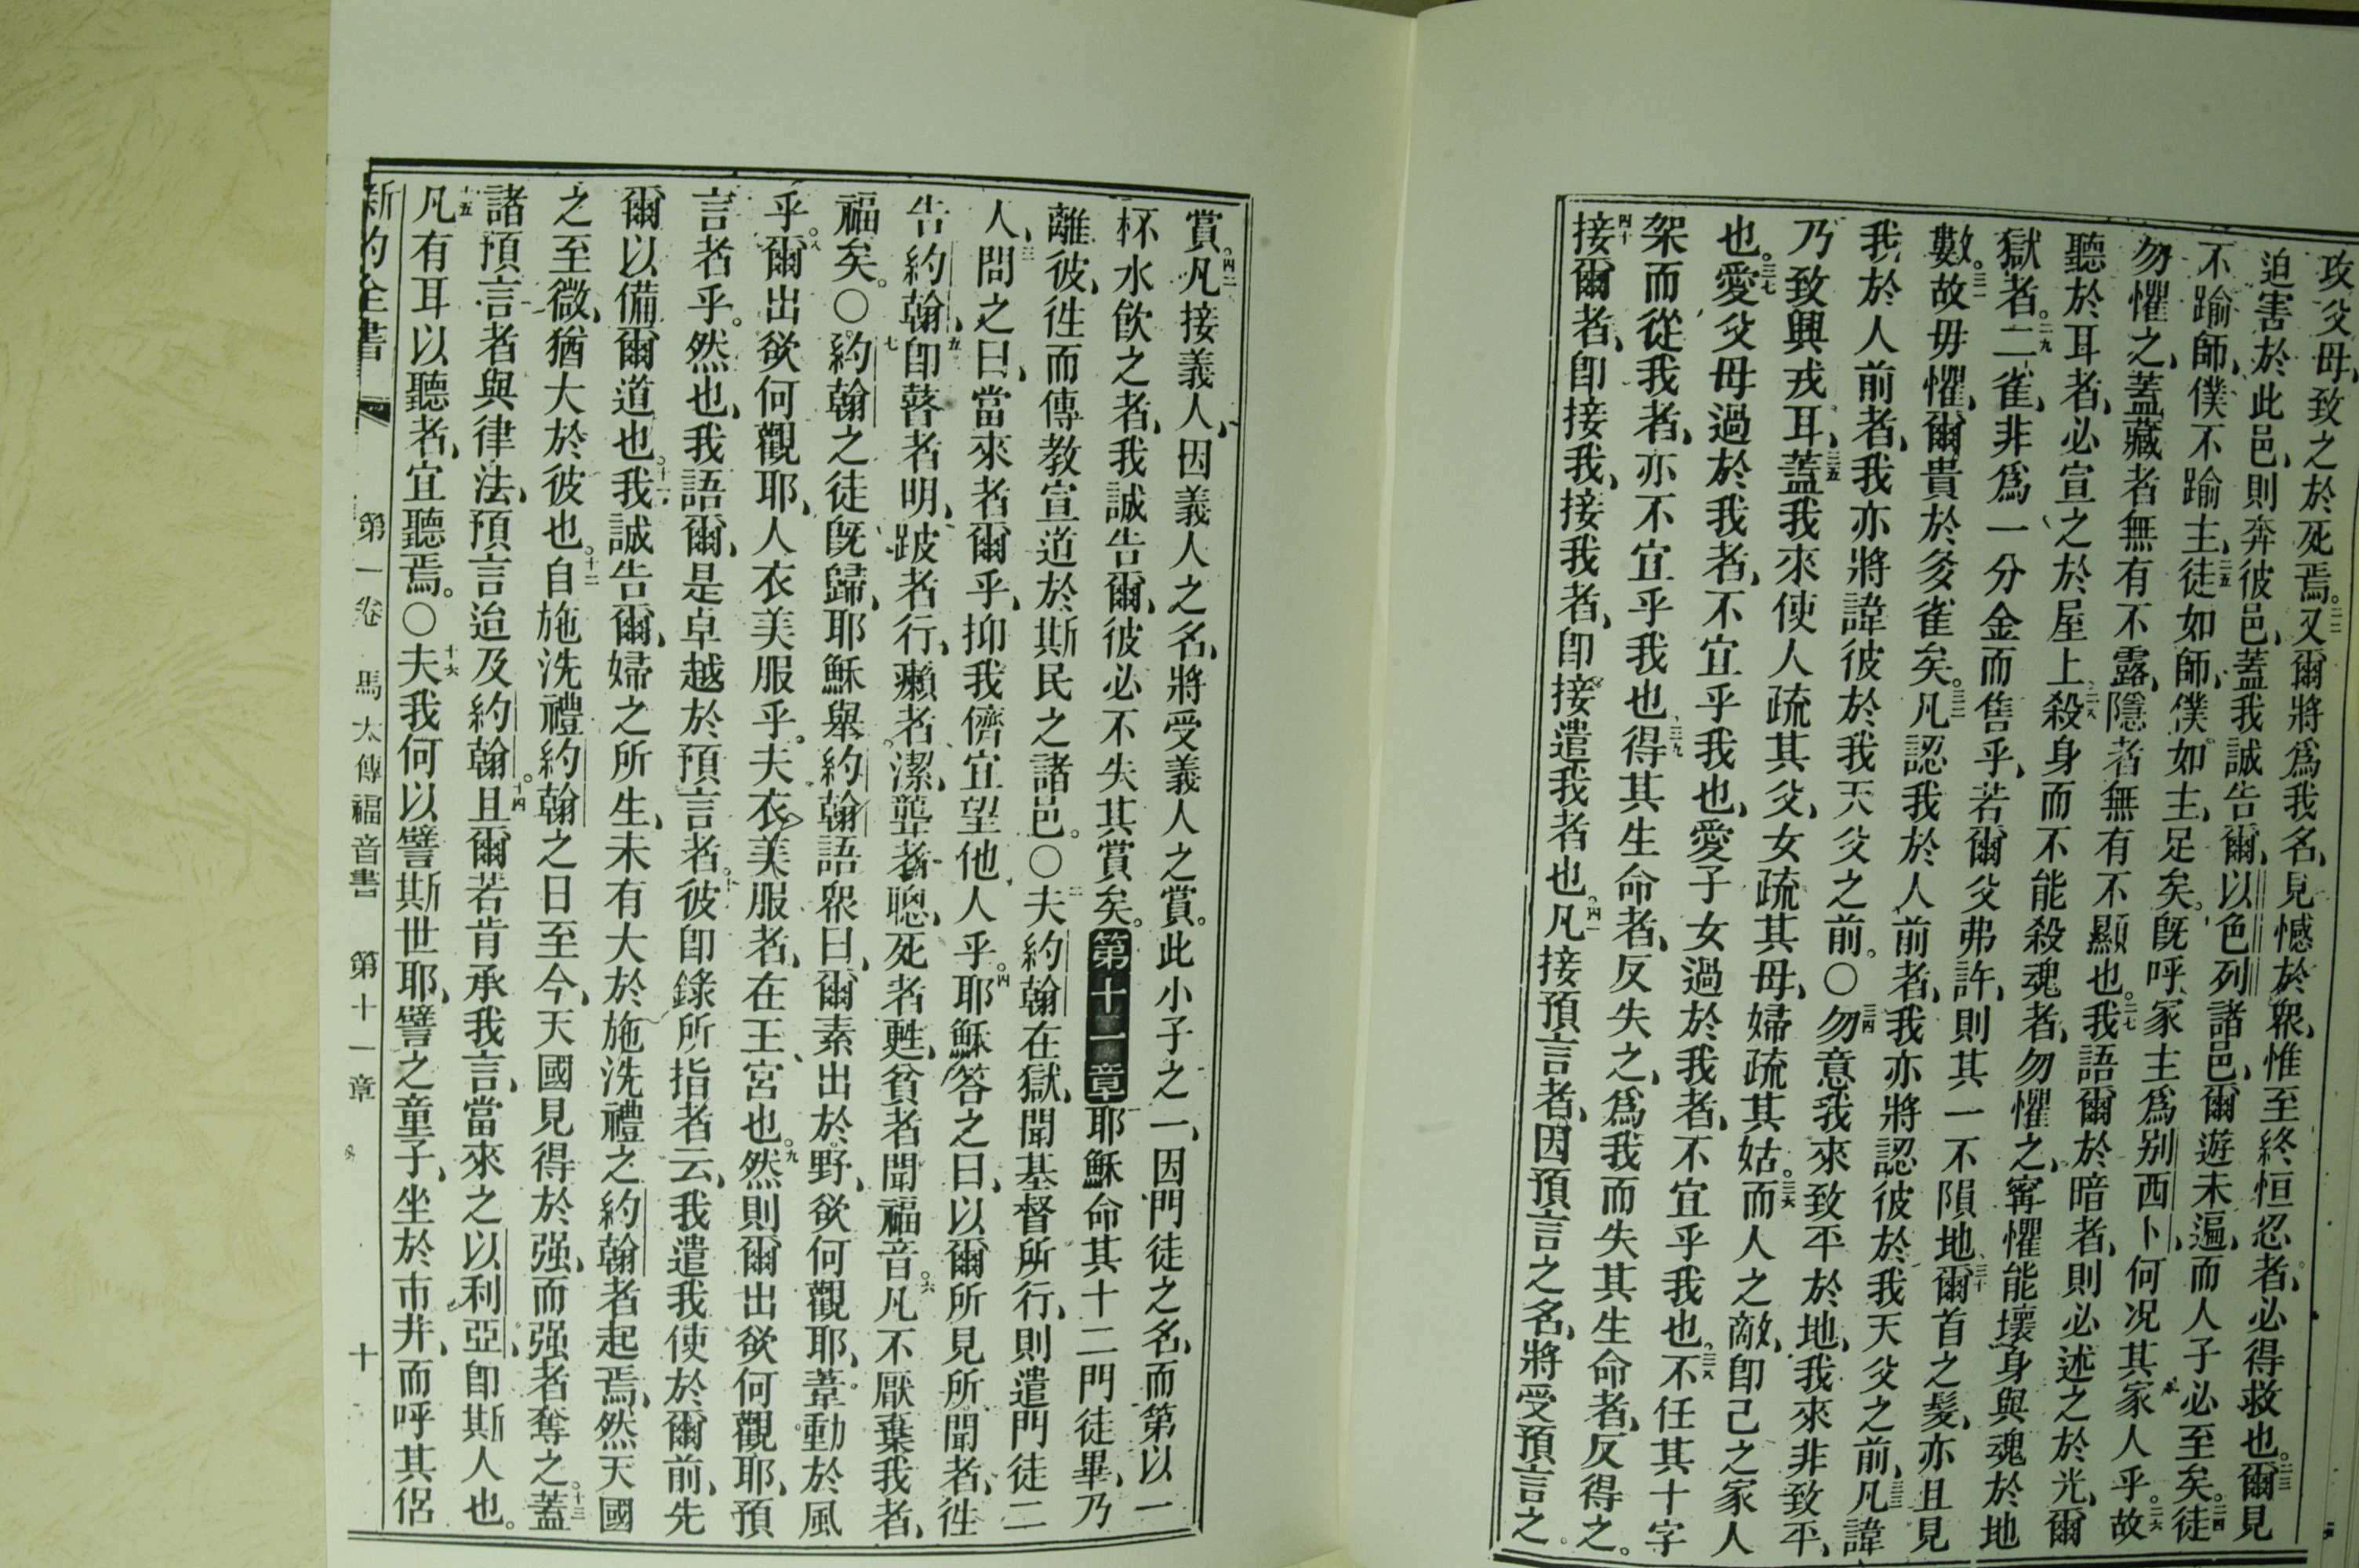 攻父母、致之於死焉。二二又爾將爲我名、見憾於衆、惟至終恒忍者、必得救也。二三爾見
迫害於此邑、則奔彼邑、蓋我誠告爾、以色列諸邑、爾遊未遍、而人子必至矣。二四徒
不踰師、僕不踰主、二五徒如師、僕如主、足矣、旣呼家主爲别西卜、何况其家人乎。二六故
勿懼之、蓋藏者無有不露、隱者無有不顯也。二七我語爾於暗者、則必述之於光、爾
聽於耳者、必宣之於屋上、二八殺身而不能殺魂者、勿懼之、寗懼能壞身與魂於地
獄者。二九二雀、非爲一分金而售乎、若爾父弗許、則其一不隕地、三十爾首之髮、亦且見
數。三一故毋懼、爾貴於多雀矣。三二凡認我於人前者、我亦將認彼於我天父之前、三三凡諱
我於人前者、我亦將諱彼於我天父之前。〇三四勿意我來致平於地、我來非致平、
乃致興戎耳、三五蓋我來使人疏其父、女疏其母、婦疏其姑。三六而人之敵、卽己之家人
也。三七愛父母過於我者、不宜乎我也、愛子女過於我者、不宜乎我也。三八不任其十字
架而從我者、亦不宜乎我也、三九得其生命者、反失之、爲我而失其生命者、反得之。
四十接爾者、卽接我、接我者、卽接遣我者也。四一凡接預言者、因預言之名、將受預言之
賞。四二凡接義人、因義人之名、將受義人之賞。此小子之一、因門徒之名、而第以一
杯水飮之者、我誠告爾、彼必不失其賞矣。第十一章耶穌命其十二門徒畢、乃
離彼、徃而傳教宣道於斯民之諸邑。〇二夫約翰在獄、聞基督所行、則遣門徒二
人、三問之曰、當來者爾乎、抑我儕宜望他人乎。四耶穌答之曰、以爾所見所聞者、徃
告約翰、五卽瞽者明、跛者行、癩者潔、聾者聰、死者甦、貧者聞福音。六凡不厭棄我者、
福矣。〇七約翰之徒旣歸、耶穌舉約翰語衆曰、爾素出於野、欲何觀耶、葦動於風
乎。八爾出欲何觀耶、人衣美服乎。夫衣美服者、在王宮也。九然則爾出欲何觀耶、預
言者乎。然也、我語爾、是卓越於預言者。十彼卽錄所指者云、我遣我使於爾前、先
爾以備爾道也。十一我誠告爾、婦之所生、未有大於施洗禮之約翰者起焉、然天國
之至微、猶大於彼也。十二自施洗禮約翰之日至今、天國見得於强、而强者奪之。十三蓋
諸預言者與律法、預言迨及約翰。十四且爾若肯承我言、當來之以利亞、卽斯人也。
十五凡有耳以聽者、宜聽焉。〇十六夫我何以譬斯世耶、譬之童子、坐於市井、而呼其侶
新約全書 第一卷 馬太傳福音書 第十一章 十